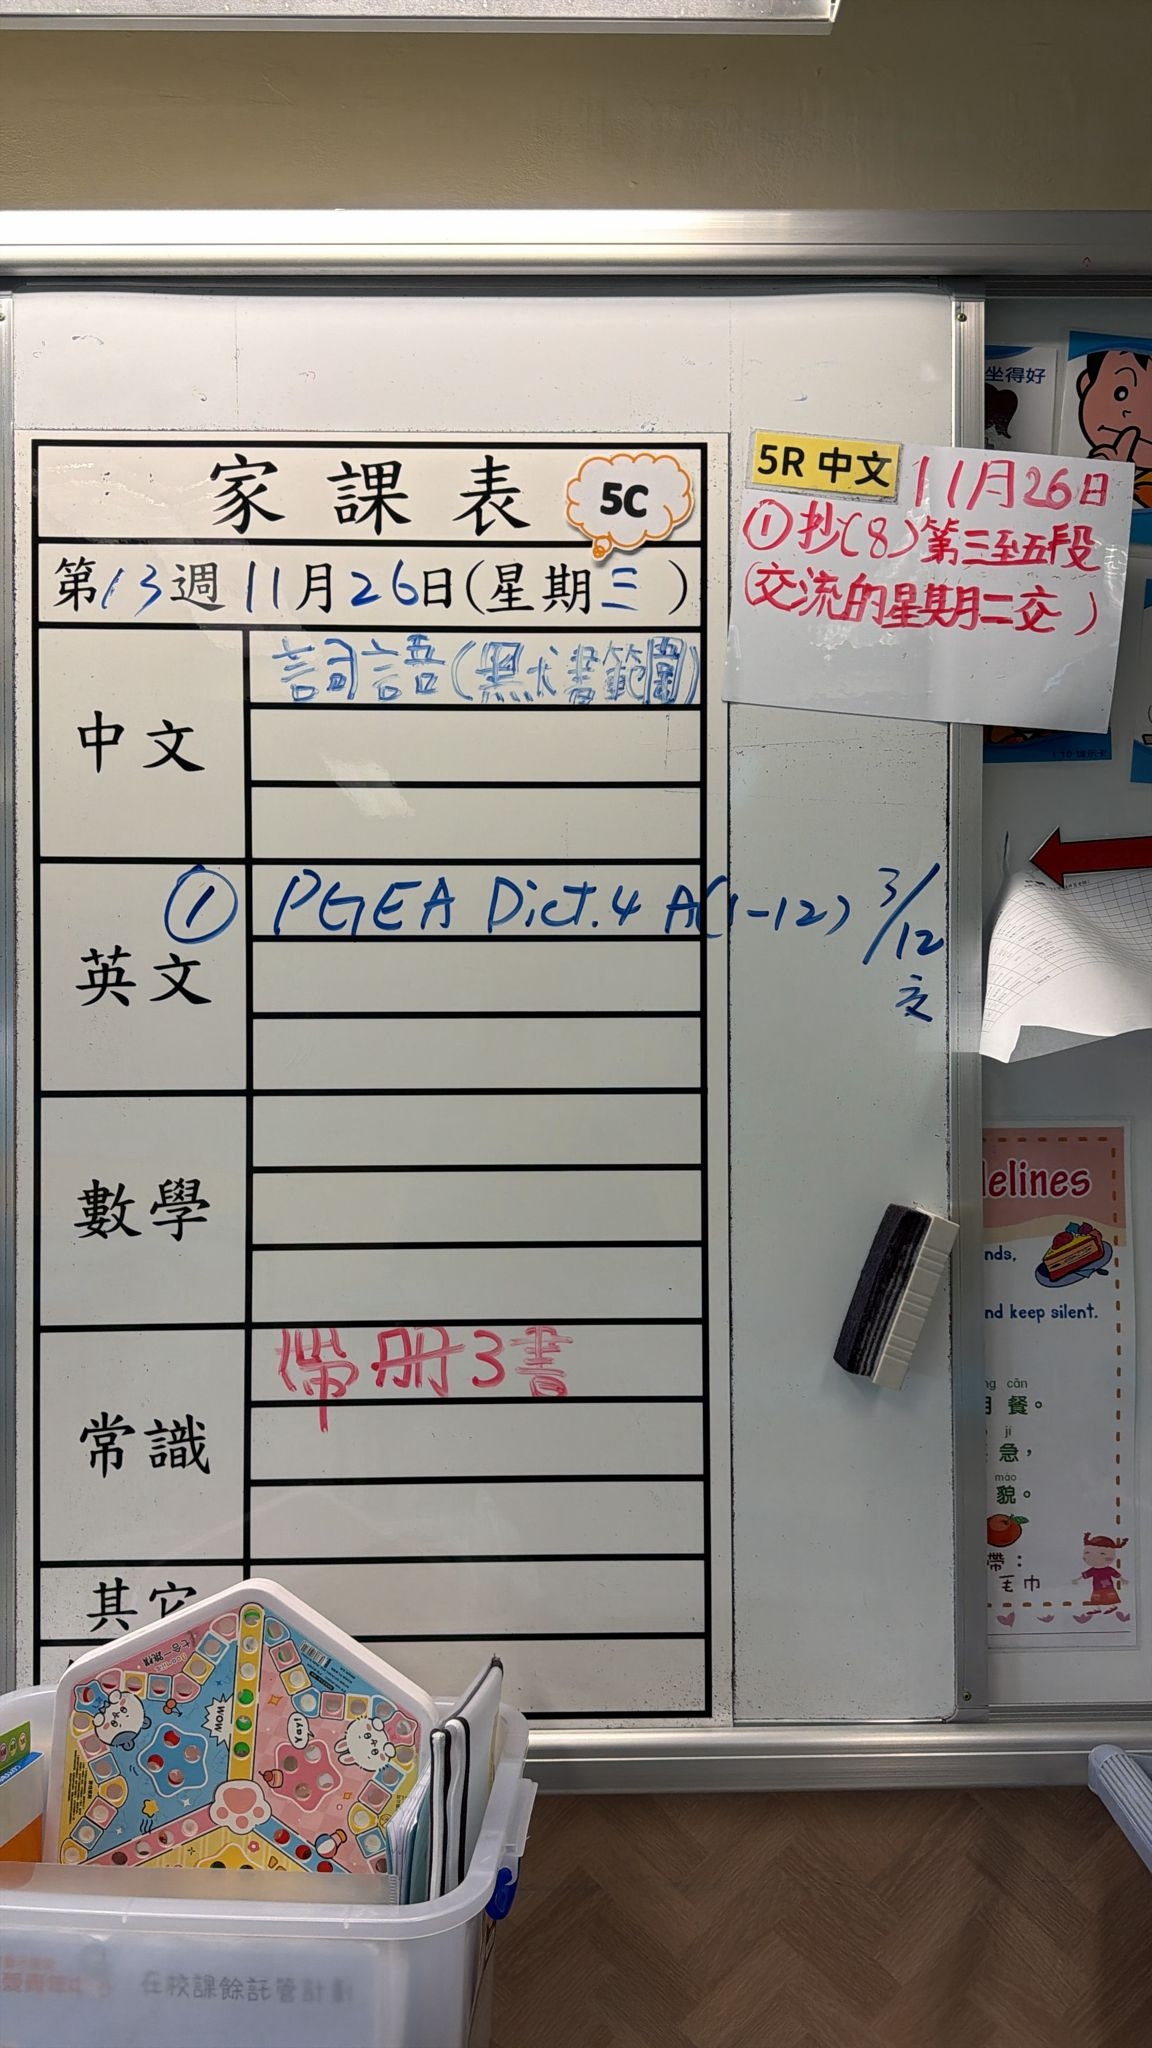 家課表
5C
第13週11月26日(星期三)
中文
詞語(默書範圍)
英文
① PGEA Dict.4 A(1-12) 3/12
交
數學
常識
帶册3書
其它
5R 中文
11月26日
①抄(8)第三至五段
(交流的星期二交)
坐得好
delines
nds,
nd keep silent.
cān
餐。
jí
急，
mào
貌。
帶：
毛巾
WOW
Yay!
在校課餘託管計劃